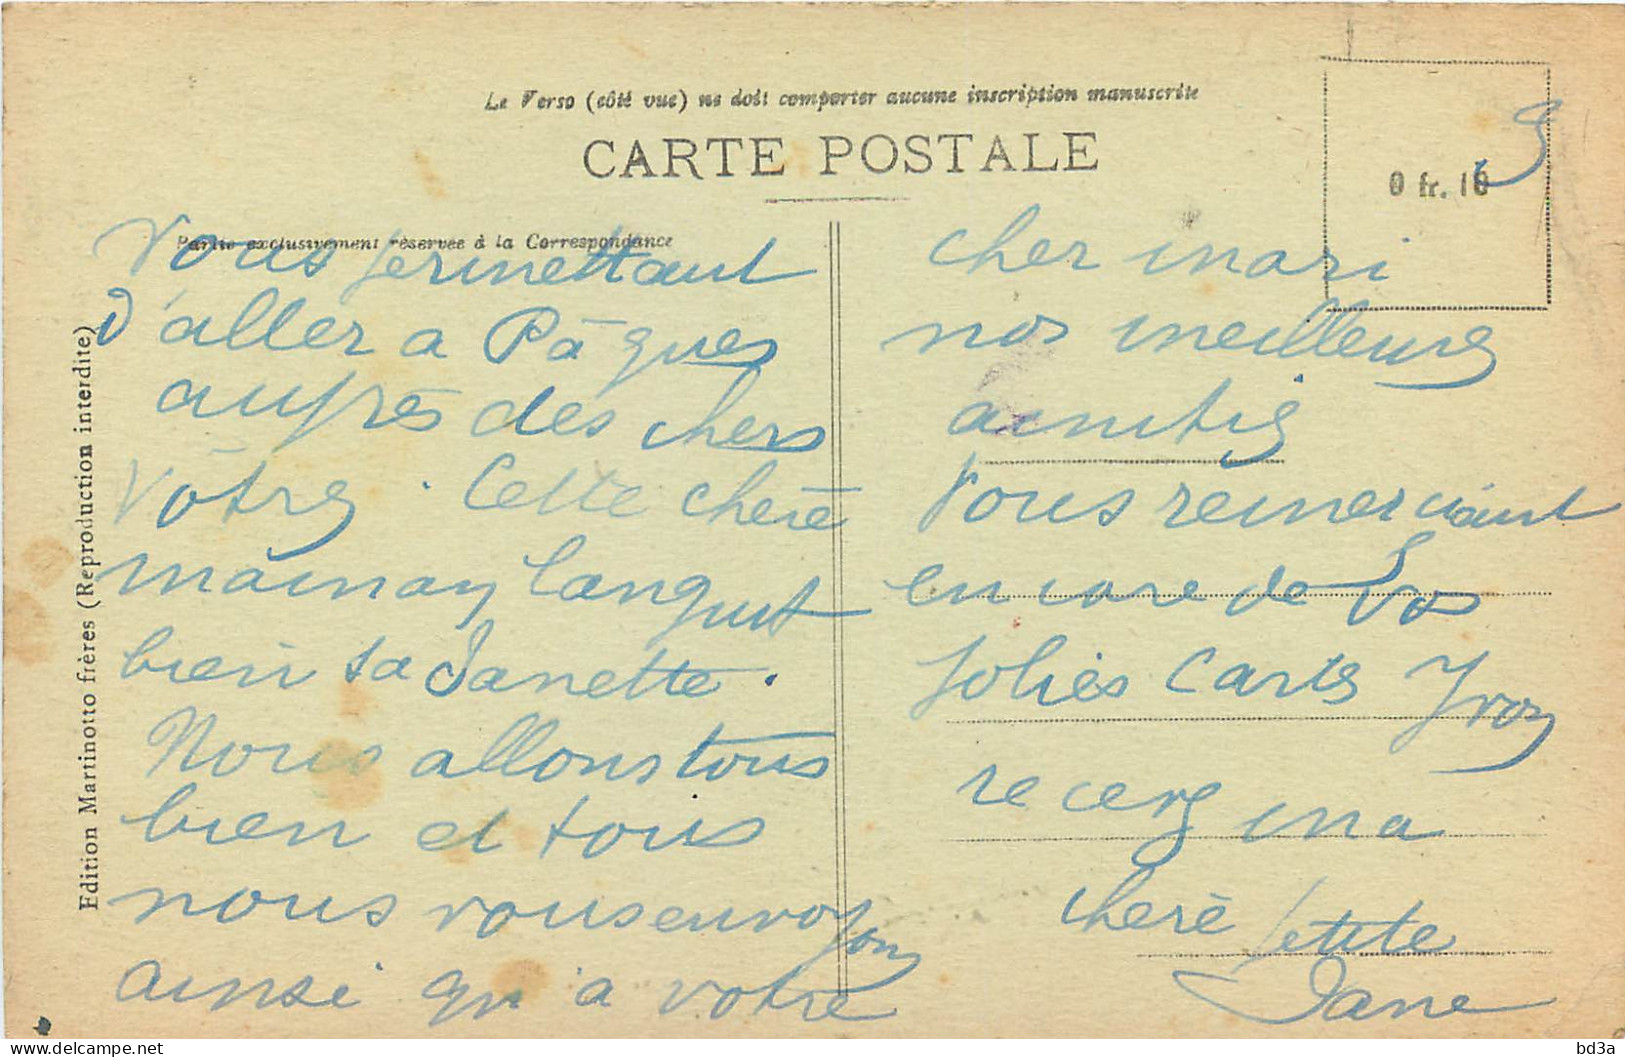 Le Verso (côté vue) ne doit comporter aucune inscription manuscrite
CARTE POSTALE
0 fr. 10
3
Partie exclusivement réservée à la Correspondance
Edition Martinotto frères (Reproduction interdite)
Vous permettant
d'aller a Pâques
auprès des chers
Vôtres. Cette chère
maman languit
bien sa Janette.
Nous allons tous
bien et tous
nous vous envoyons
ainsi qu'a votre
cher mari
nos meilleures
amitiés
Vous remerciant
encore de Vos
Jolies Cartes
recevez ma
chère petite
Jane
bd3a